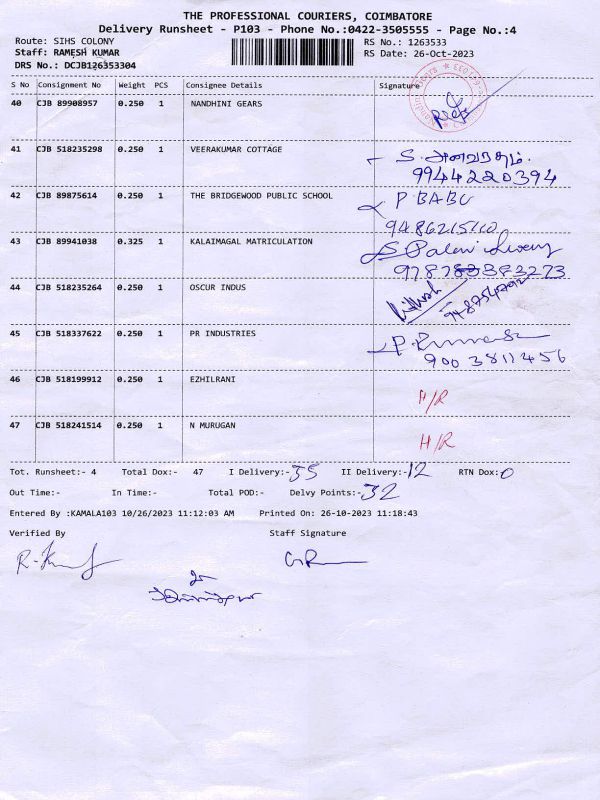 THE PROFESSIONAL COURIERS, COIMBATORE
Delivery Runsheet - P103 - Phone No.:0422-3505555 - Page No.:4
Route: SIHS COLONY
RS No.: 1263533
Staff: RAMESH KUMAR
RS Date: 26-Oct-2023
DRS No.: DCJB126353304
S No Consignment No Weight PCS Consignee Details Signature
40 CJB 89908957 0.250 1 NANDHINI GEARS
41 CJB 518235298 0.250 1 VEERAKUMAR COTTAGE
9944220394
42 CJB 89875614 0.250 1 THE BRIDGEWOOD PUBLIC SCHOOL P BABU
43 CJB 89941038 0.325 1 KALAIMAGAL MATRICULATION
44 CJB 518235264 0.250 1 OSCUR INDUS
45 CJB 518337622 0.250 1 PR INDUSTRIES
9003811456
46 CJB 518199912 0.250 1 EZHILRANI H/R
47 CJB 518241514 0.250 1 N MURUGAN H/R
Tot. Runsheet:- 4 Total Dox:- 47 I Delivery:- 35 II Delivery:- 12 RTN Dox:- 0
Out Time:- In Time:- Total POD:- Delvy Points:- 32
Entered By :KAMALA103 10/26/2023 11:12:03 AM Printed On: 26-10-2023 11:18:43
Verified By Staff Signature